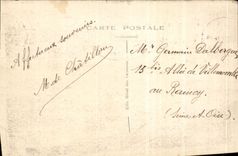 CARTE POSTALE
Affectueux souvenirs.
M. de Châtillon
Mr Germain
15 bis Allée de Villemomble
au Raincy
(Seine-et-Oise)